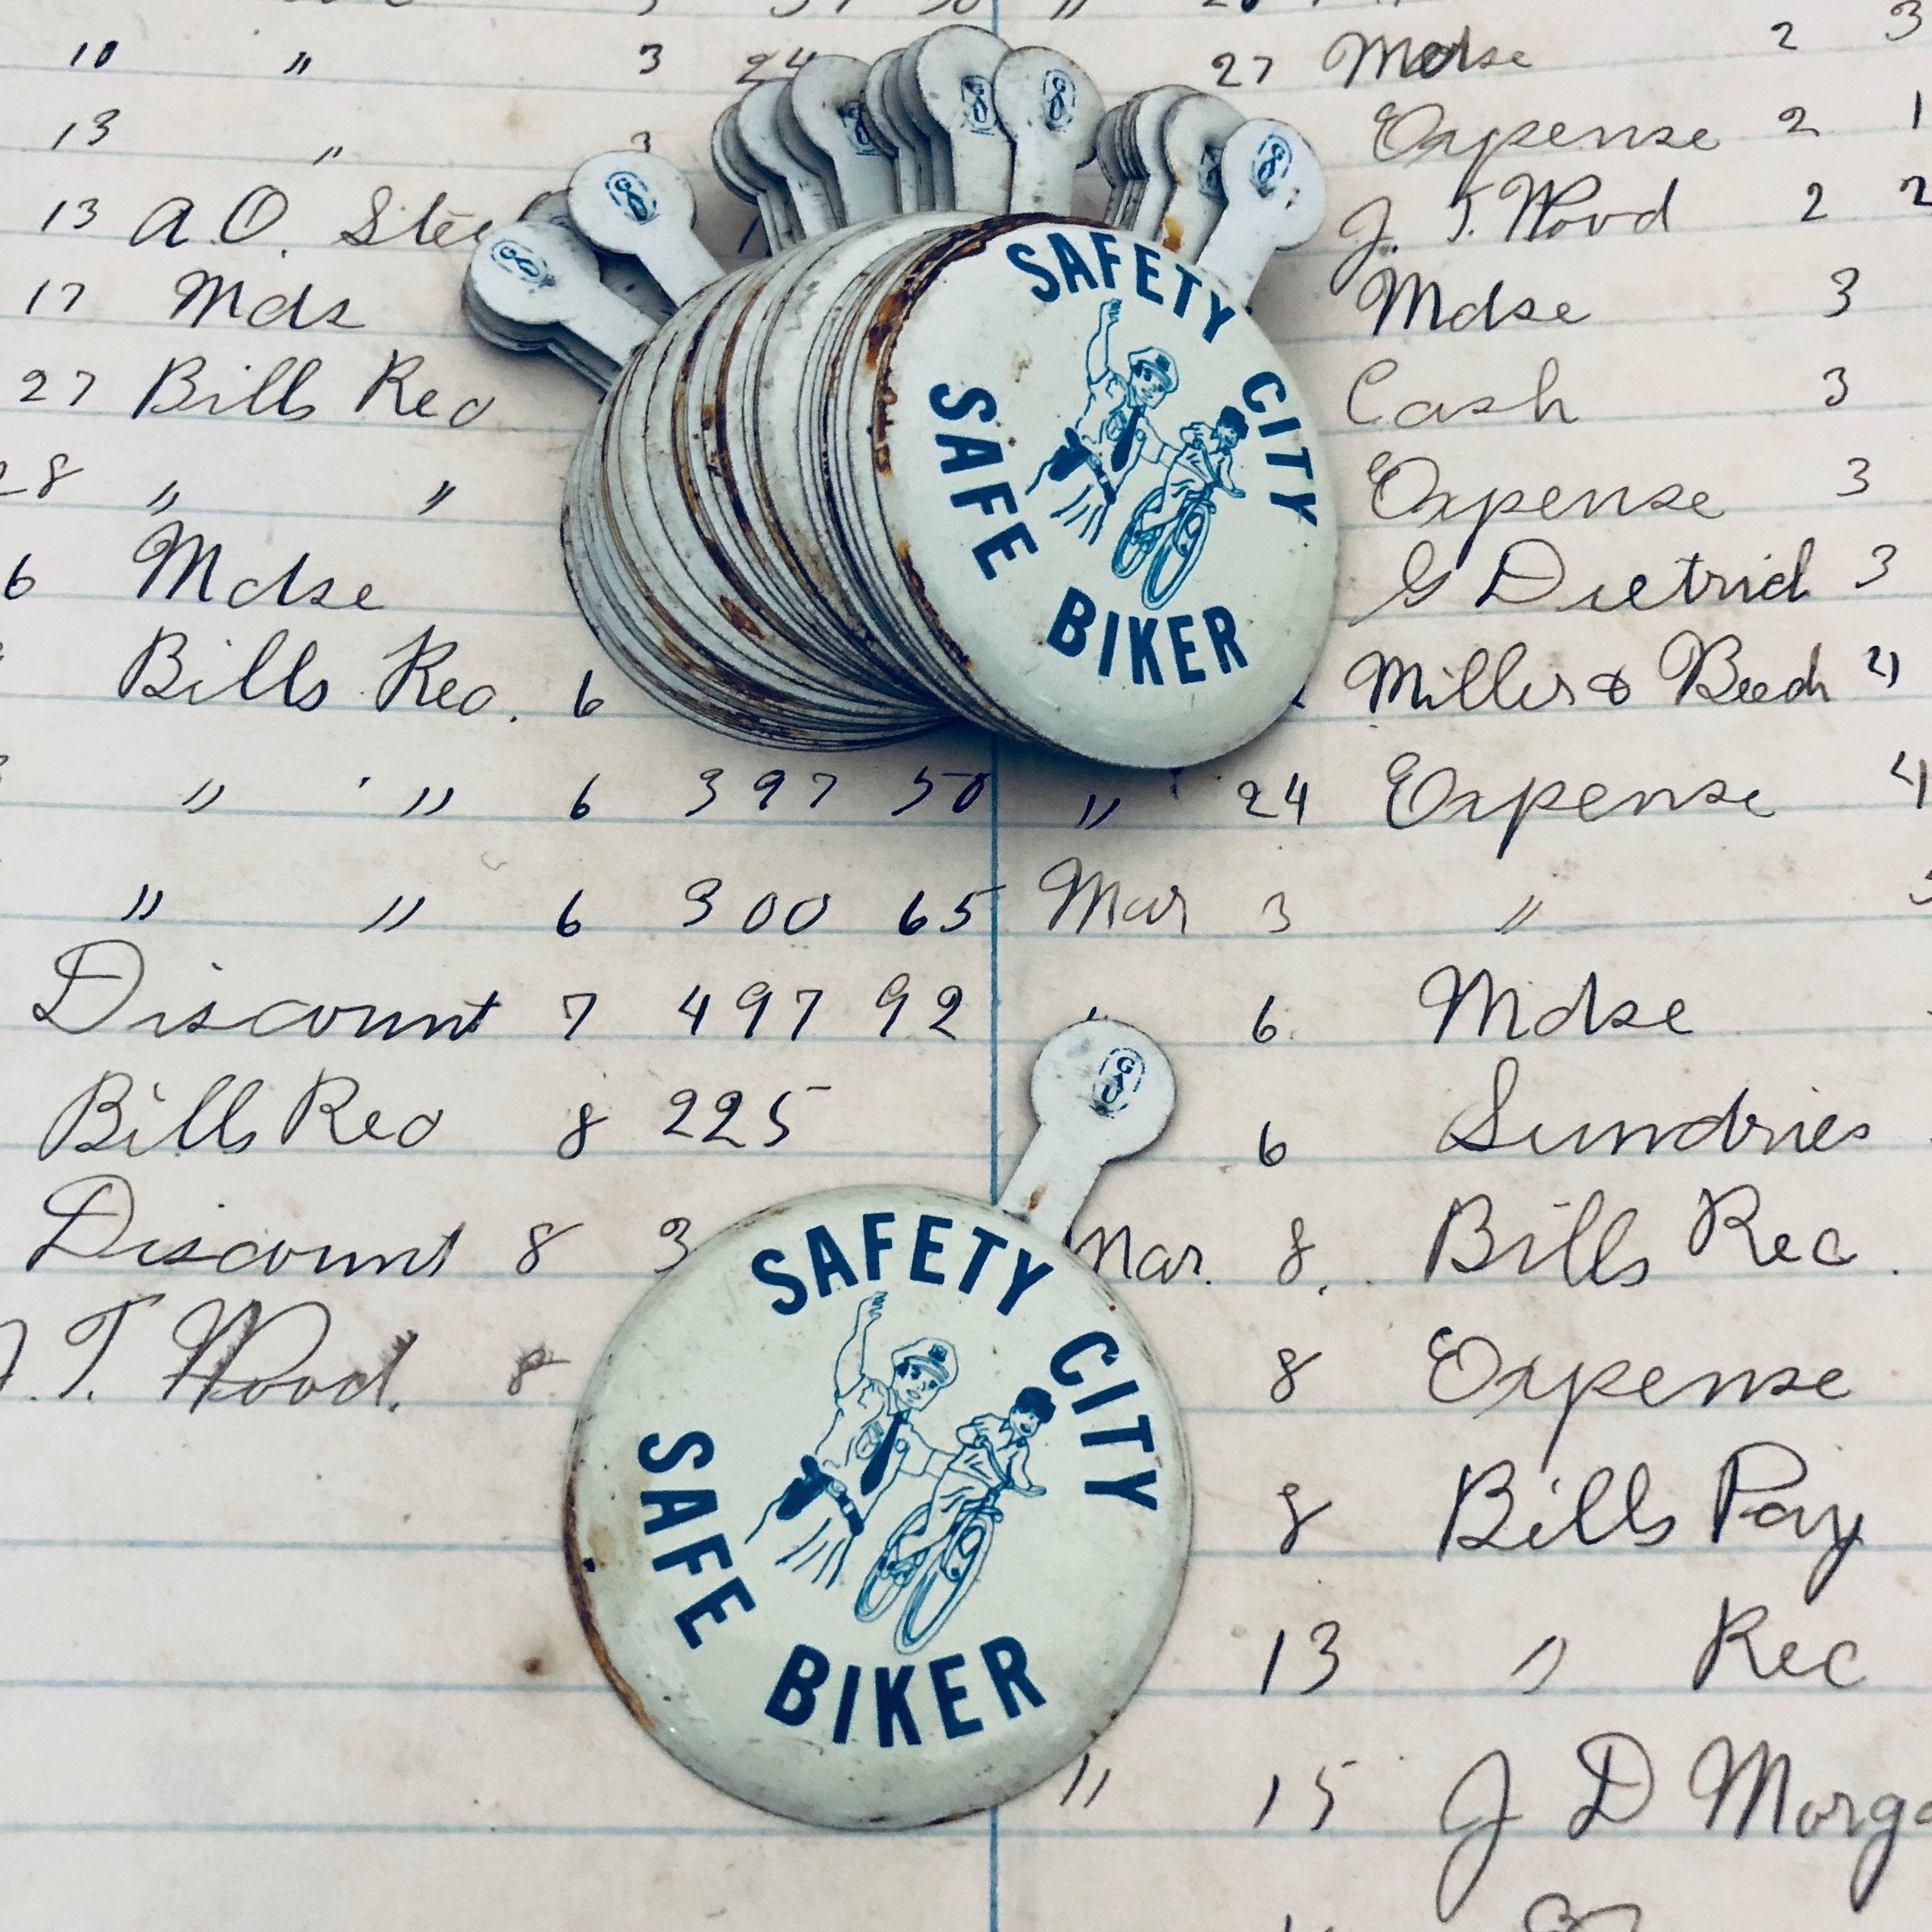 10 " 3 24 27 Mdse 2 3
13 " 3 Expense 2 1
13 A.O. J. T. Wood 2 2
17 Mds Mdse 3
27 Bills Rec Cash 3
28 " " Expense 3
6 Mdse G Dietrich 3
Bills Rec. 6 Miller & 4
" " 6 397 50 " 24 Expense 4
" " 6 300 65 Mar 3 "
Discount 7 497 92 " 6 Mdse
Bills Rec 8 225 6 Sundries
Discount 8 3 Mar. 8. Bills Rec.
J. T. Wood. 8 8 Expense
8 Bills Pay
13 " Rec
" 15 J D Morg
SAFETY CITY
SAFE BIKER
SAFETY CITY
SAFE BIKER